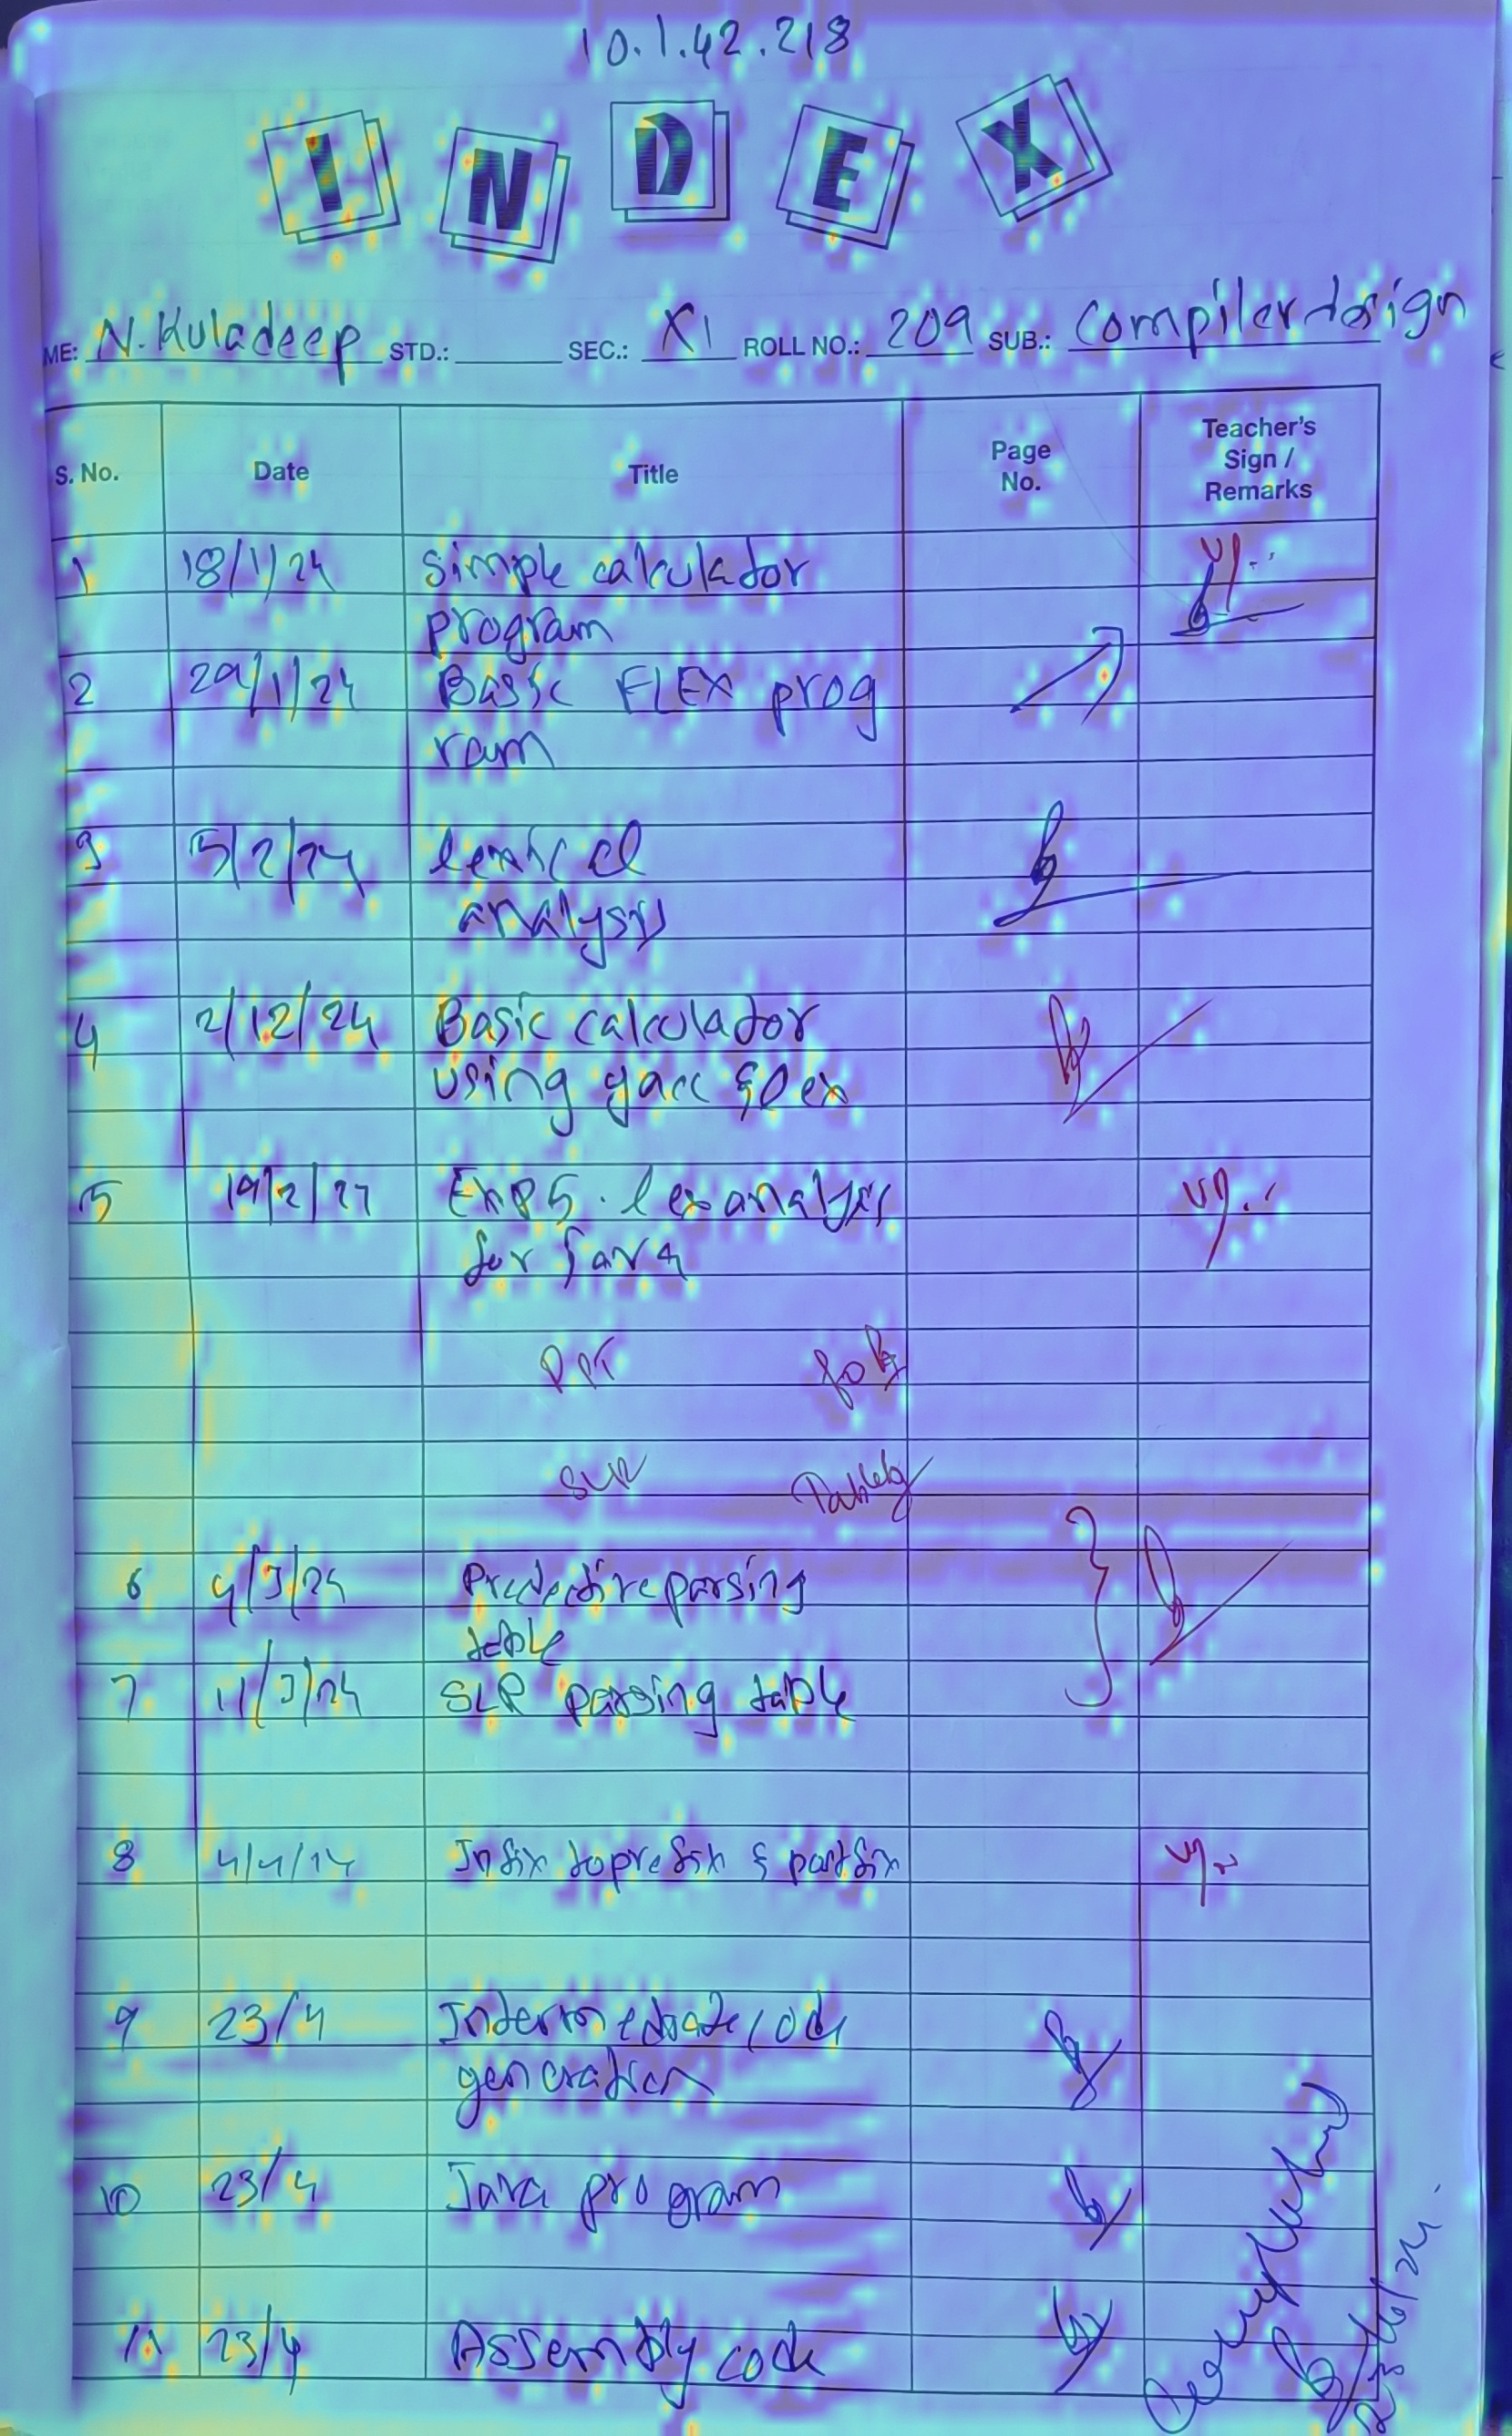 10.1.42.218
INDEX
ME: N.Kuladeep STD.: SEC.: XI ROLL NO.: 209 SUB.: Compiler design
S. No. Date Title Page No. Teacher's Sign / Remarks
1 18/1/24 Simple calculator
program
2 29/1/24 Basic FLEX prog
ram
3 5/2/24 lexical
analysis
4 2/12/24 Basic calculator
using yacc & lex
5 19/2/24 Exp 5. lex analysis
for Java
SLR
6 4/3/24 Predective parsing
table
7 11/3/24 SLR parsing table
8 4/4/24 Infix to prefix & postfix
9 23/4 Intermediate code
generation
10 23/4 Java program
11 23/4 Assembly code